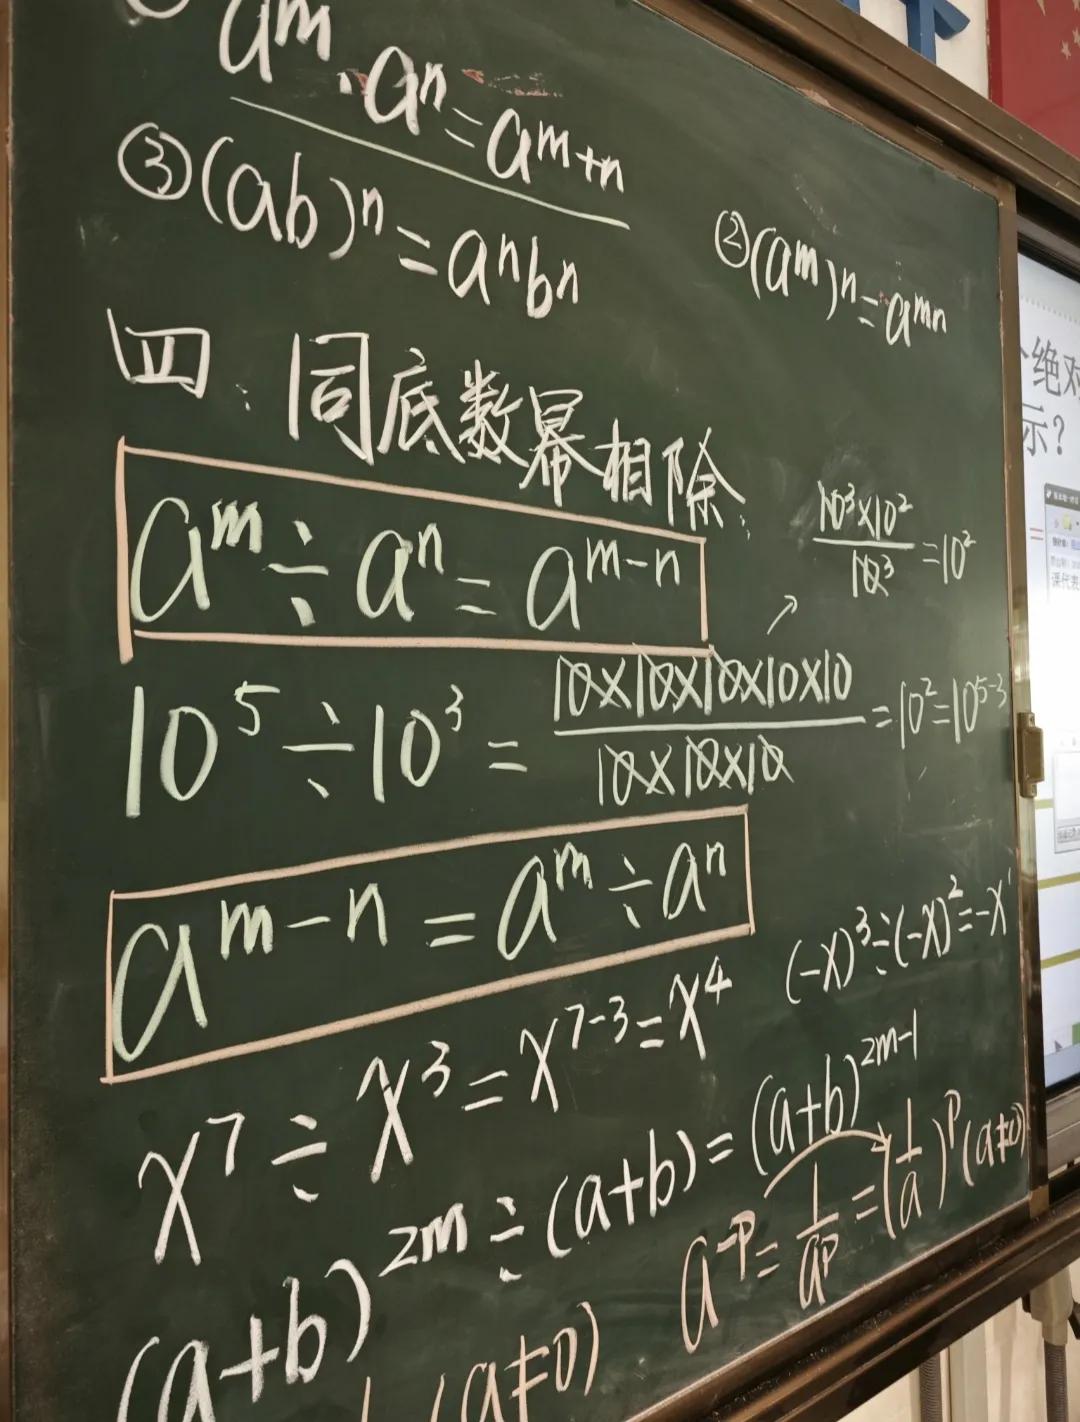 aᵐ·aⁿ=aᵐ⁺ⁿ
③(ab)ⁿ=aⁿbⁿ
②(aᵐ)ⁿ=aᵐⁿ
四、同底数幂相除
aᵐ÷aⁿ=aᵐ⁻ⁿ
10³×10²/10³=10²
10⁵÷10³=10×10×10×10×10/10×10×10=10²=10⁵⁻³
aᵐ⁻ⁿ=aᵐ÷aⁿ
(-x)³÷(-x)²=-x¹
x⁷÷x³=x⁷⁻³=x⁴
(a+b)²ᵐ÷(a+b)=(a+b)²ᵐ⁻¹
a⁻ᵖ=1/aᵖ=(1/a)ᵖ(a≠0)
(a≠0)
绝对
示?
课代表